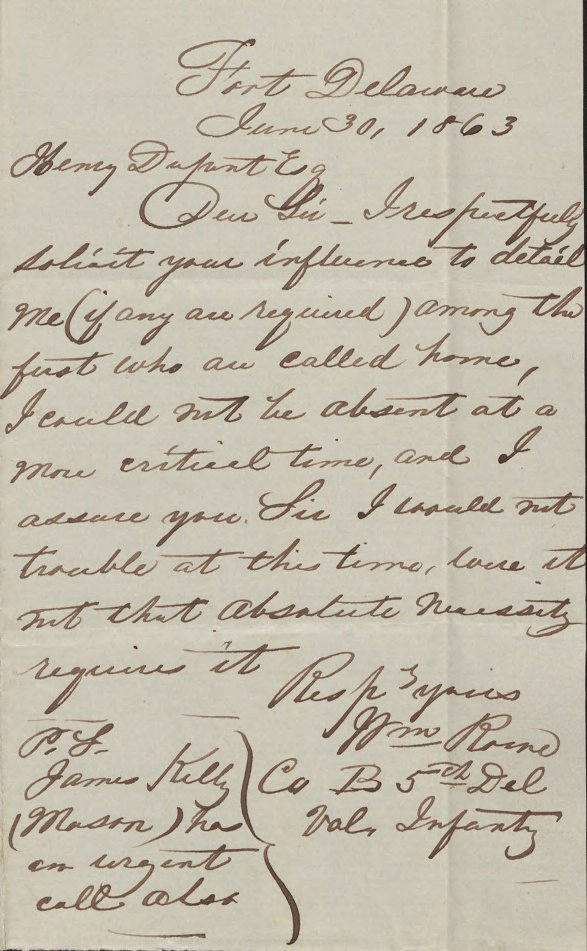 Fort Delaware
June 30, 1863
Henry Dupont Esq
Dear Sir – I respectfully
solicit your influence to detail
me (if any are required) among the
first who are called home,
I could not be absent at a
more critical time, and I
assure you Sir I would not
trouble at this time, were it
not that absolute necessity
requires it
Respy yours
Wm
Co B 5th Del
Vol. Infantry
P.S.
James Kelly
(Mason) has
an urgent
call also